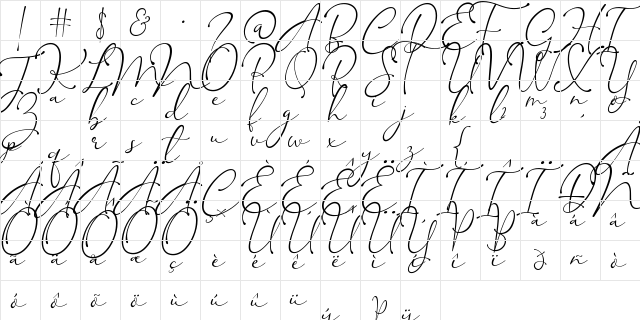 ! # $ & · ? @ A B C D E F G H I
J K L M N O P Q R S T U V W X Y
Z a b c d e f g h i j k l m n o
p q r s t u v w x y z {
À Á Â Ã Ä Å Ç È É Ê Ë Ì Í Î Ï Ð Ñ
Ò Ó Ô Õ Ö Ù Ú Û Ü Ý Þ à á â
ã ä å æ ç è é ê ë ì í î ï ð ñ ò
ó ô õ ö ù ú û ü ý þ ÿ